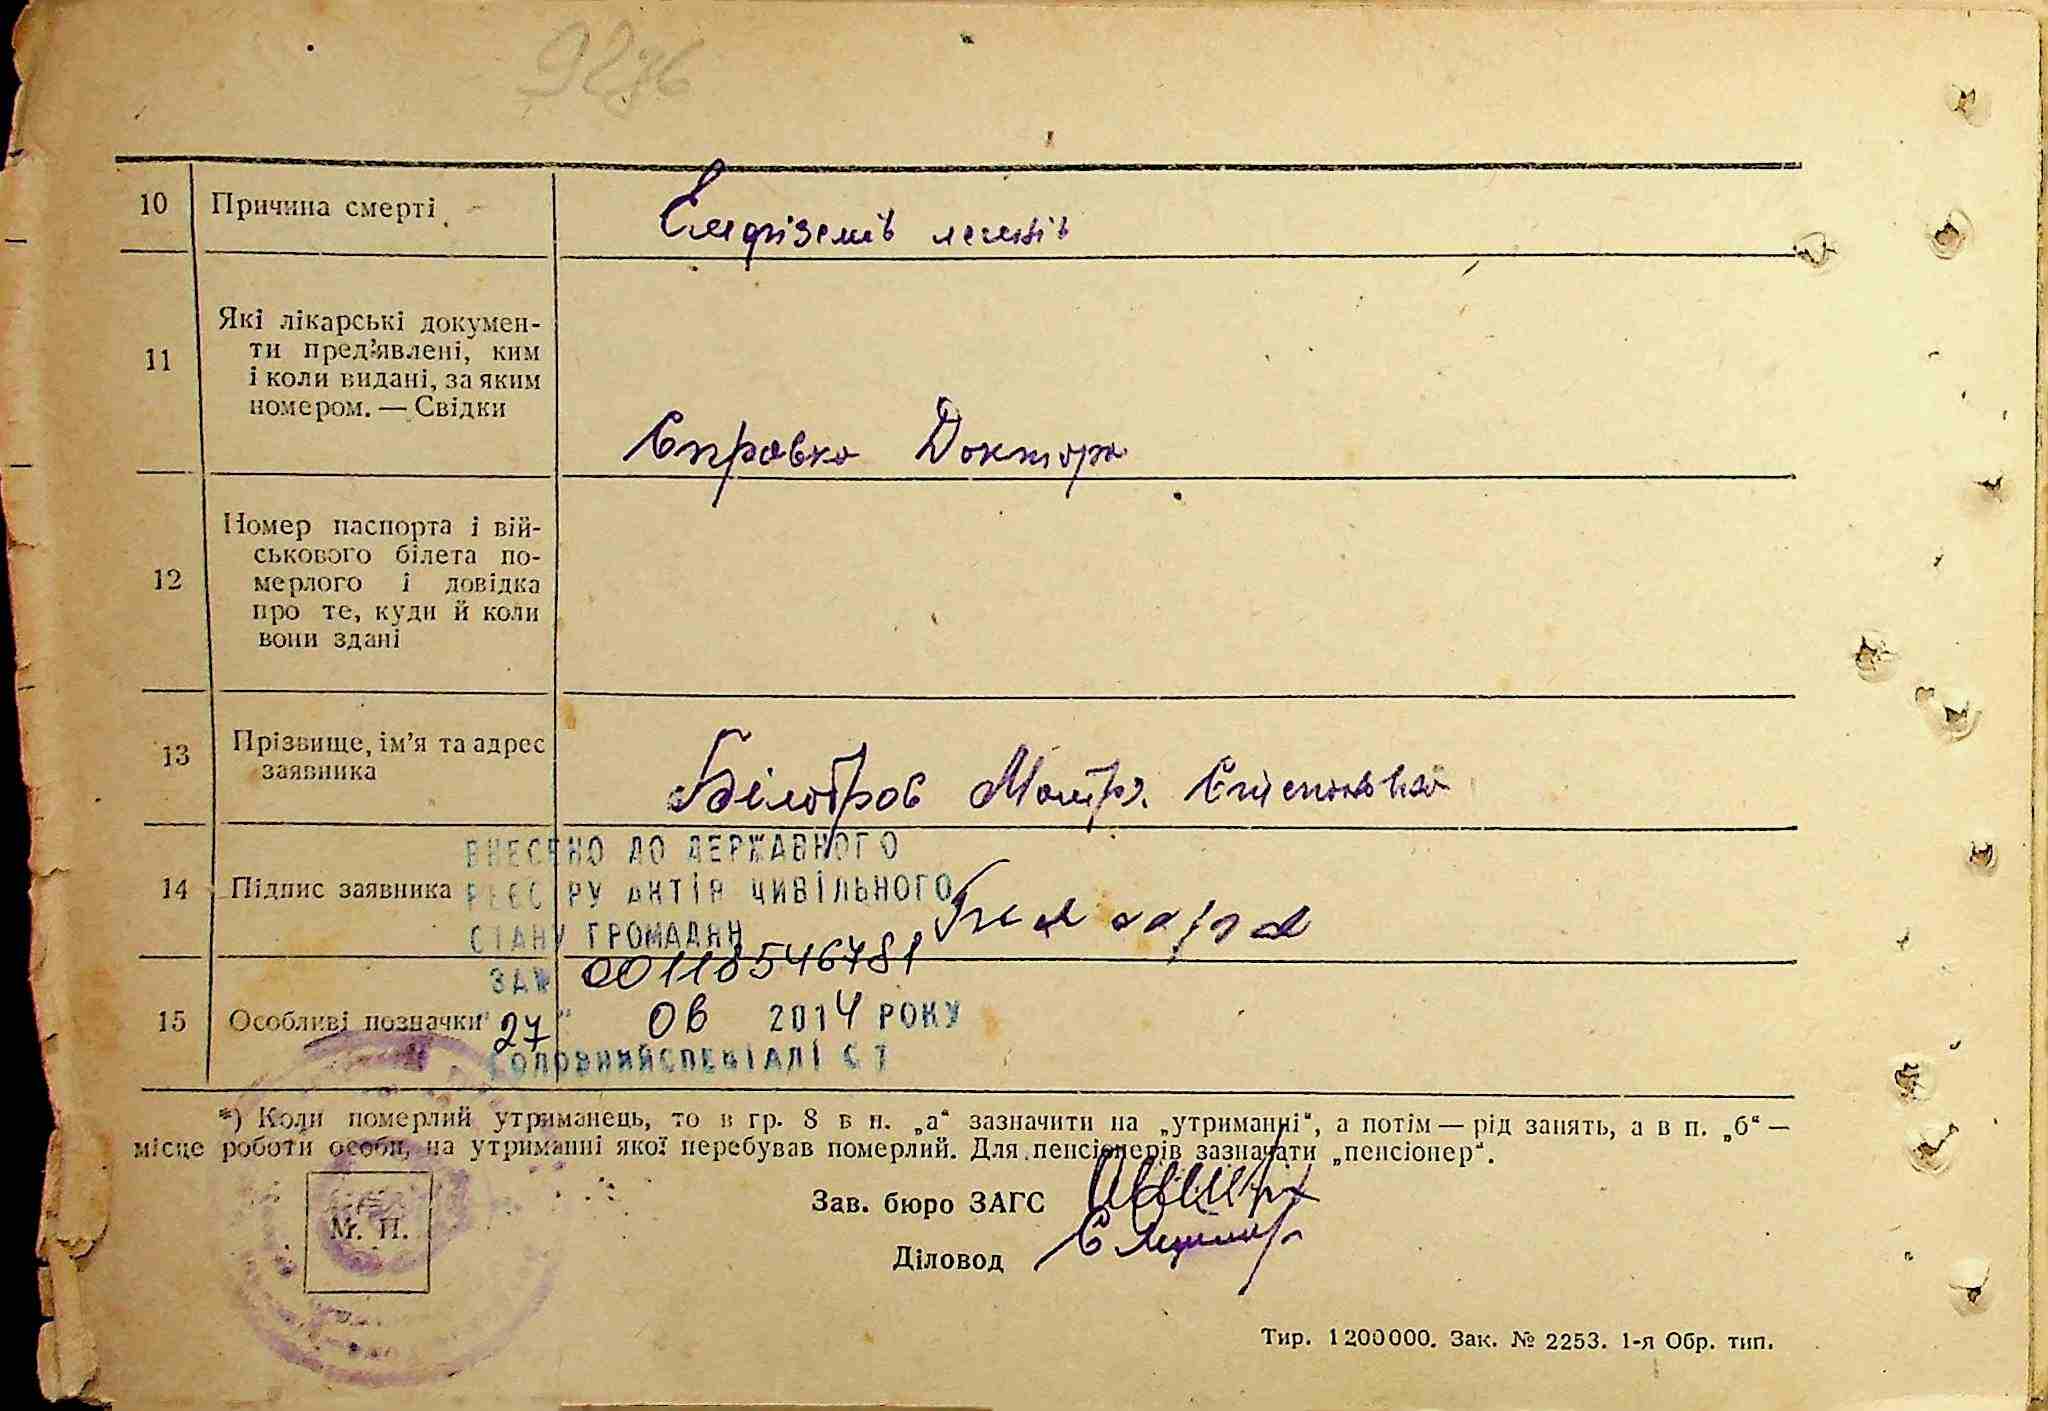 9276
10 Причина смерті Емфіземів легенів
11 Які лікарські докумен-
ти пред'явлені, ким
і коли видані, за яким
номером. — Свідки
Справка Доктора
Номер паспорта і вій-
ськового білета по-
12 мерлого і довідка
про те, куди й коли
вони здані
13 Прізвище, ім'я та адрес
заявника
Білобров Мотря Степановна
ВНЕСЕНО ДО ДЕРЖАВНОГО
14 Підпис заявника
РЕЄСТРУ АКТІВ ЦИВІЛЬНОГО
СТАНУ ГРОМАДЯН
ЗА № 00118546781
15 Особливі позначки
"27" 06 2014 РОКУ
ГОЛОВНИЙ СПЕЦІАЛІСТ
*) Коли померлий утриманець, то в гр. 8 в п. „а“ зазначити на „утриманні“, а потім — рід занять, а в п. „б“ —
місце роботи особи, на утриманні якої перебував померлий. Для пенсіонерів зазначати „пенсіонер“.
Зав. бюро ЗАГС
М. П.
Діловод
Тир. 1200000. Зак. № 2253. 1-я Обр. тип.